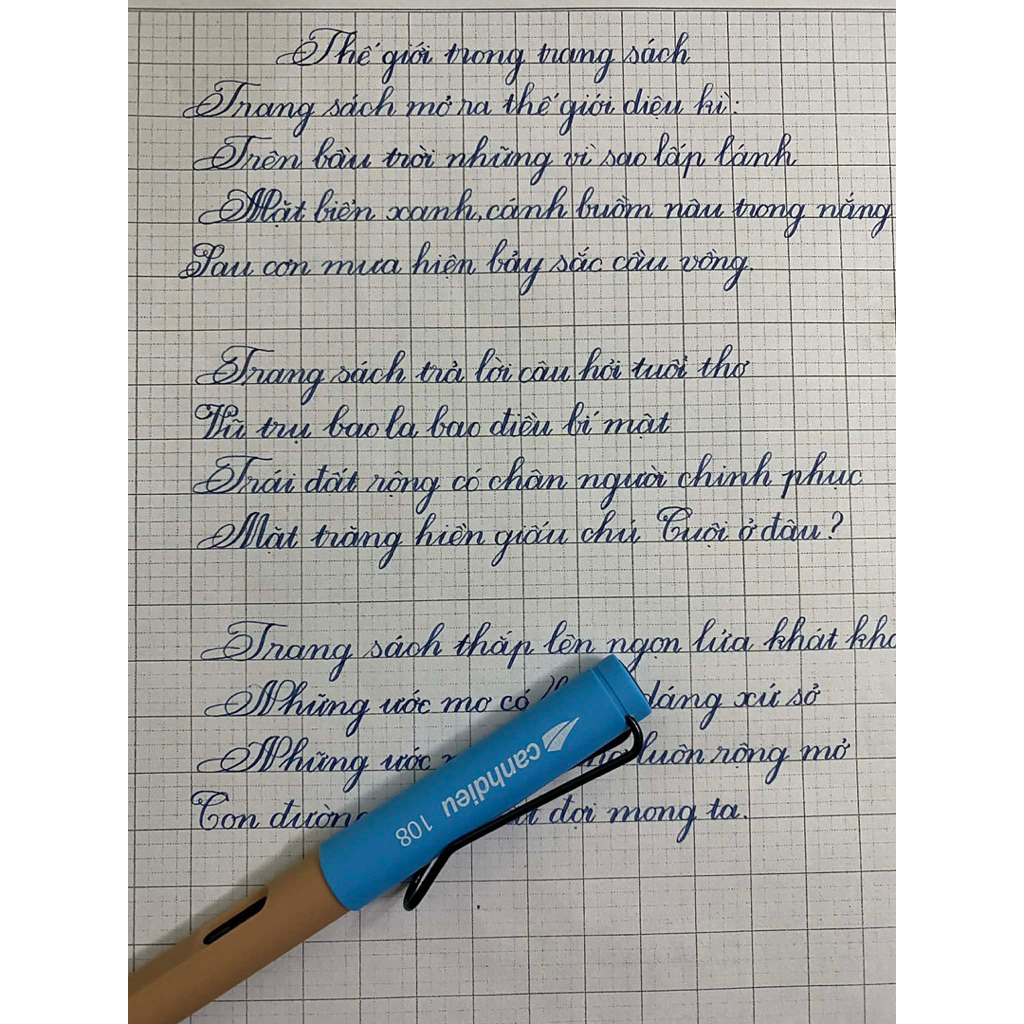 Thế giới trong trang sách
Trang sách mở ra thế giới diệu kì:
Trên bầu trời những vì sao lấp lánh
Mặt biển xanh, cánh buồm nâu trong nắng
Sau cơn mưa hiện bảy sắc cầu vồng.
Trang sách trả lời câu hỏi tuổi thơ
Vũ trụ bao la bao điều bí mật
Trái đất rộng có chân người chinh phục
Mặt trăng hiền giấu chú Cuội ở đâu?
Trang sách thắp lên ngọn lửa khát
Những ước mơ có dáng xứ sở
Những ước luôn rộng mở
Con đợi mong ta.
canhdieu 108